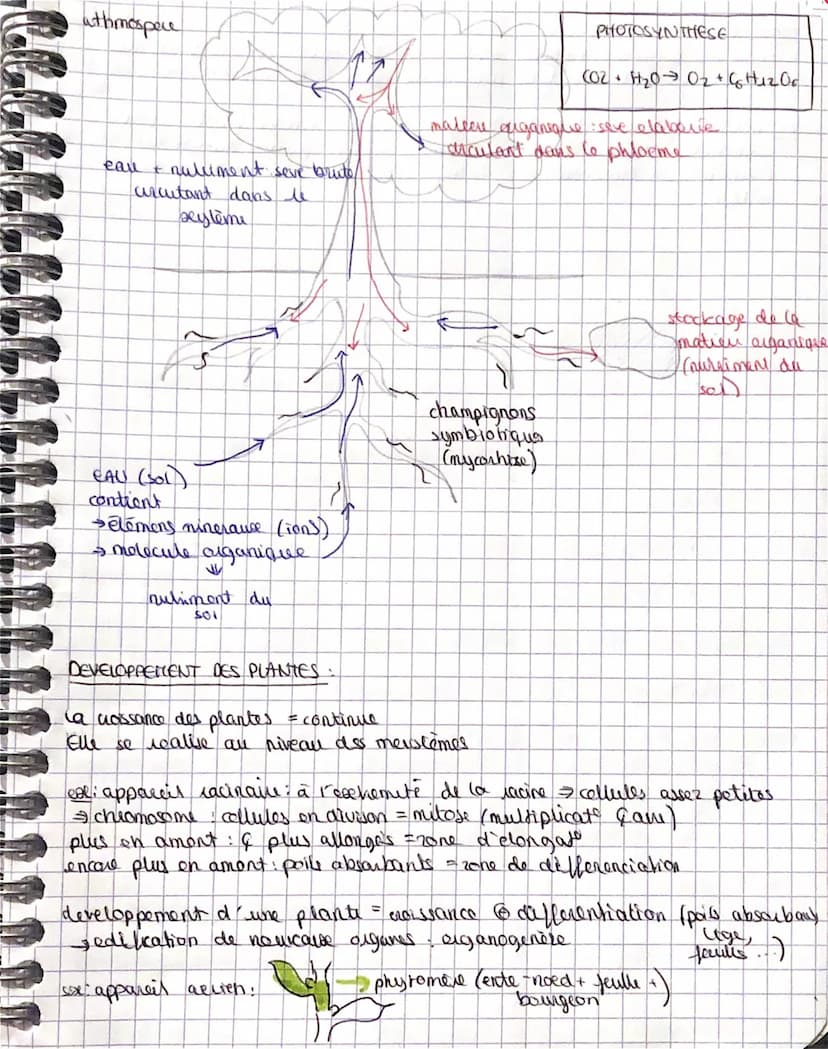 athmospere
PHOTOSYNTHESE
CO2 + H2O → O2 + C6H12O6
matiere organique : seve elaborée
circulant dans le phloeme
eau + nutriment seve brute
circulant dans le
xeylème
stockage de la
matieu organique
(nutriment du
sol)
champignons
symbiotique
(mycorhize)
EAU (sol)
contient
→ élémens mineraux (ions)
→ molecule organique
⇓
nutriment du
sol
DEVELOPPEMENT DES PLANTES :
la croissance des plantes = continue
Elle se realise au niveau des meristèmes
ex: appareil racinaire : à l'exchemité de la racine ⇒ cellules assez petites
⇒ chromosome : cellules en division = mitose (multiplicat°
plus en amont : ₵ plus allongés = zone d'elongat°
encore plus en amont : poils absorbants = zone de differenciation
developpement d'une plante = croissance ⊕ differentiation (poils absorbant
tige,
feuills ...)
→ edification de nouveaux organes : organogenèse
ex: appareil aerien :
→ phytomère (entre-noed + feuille +
bourgeon)